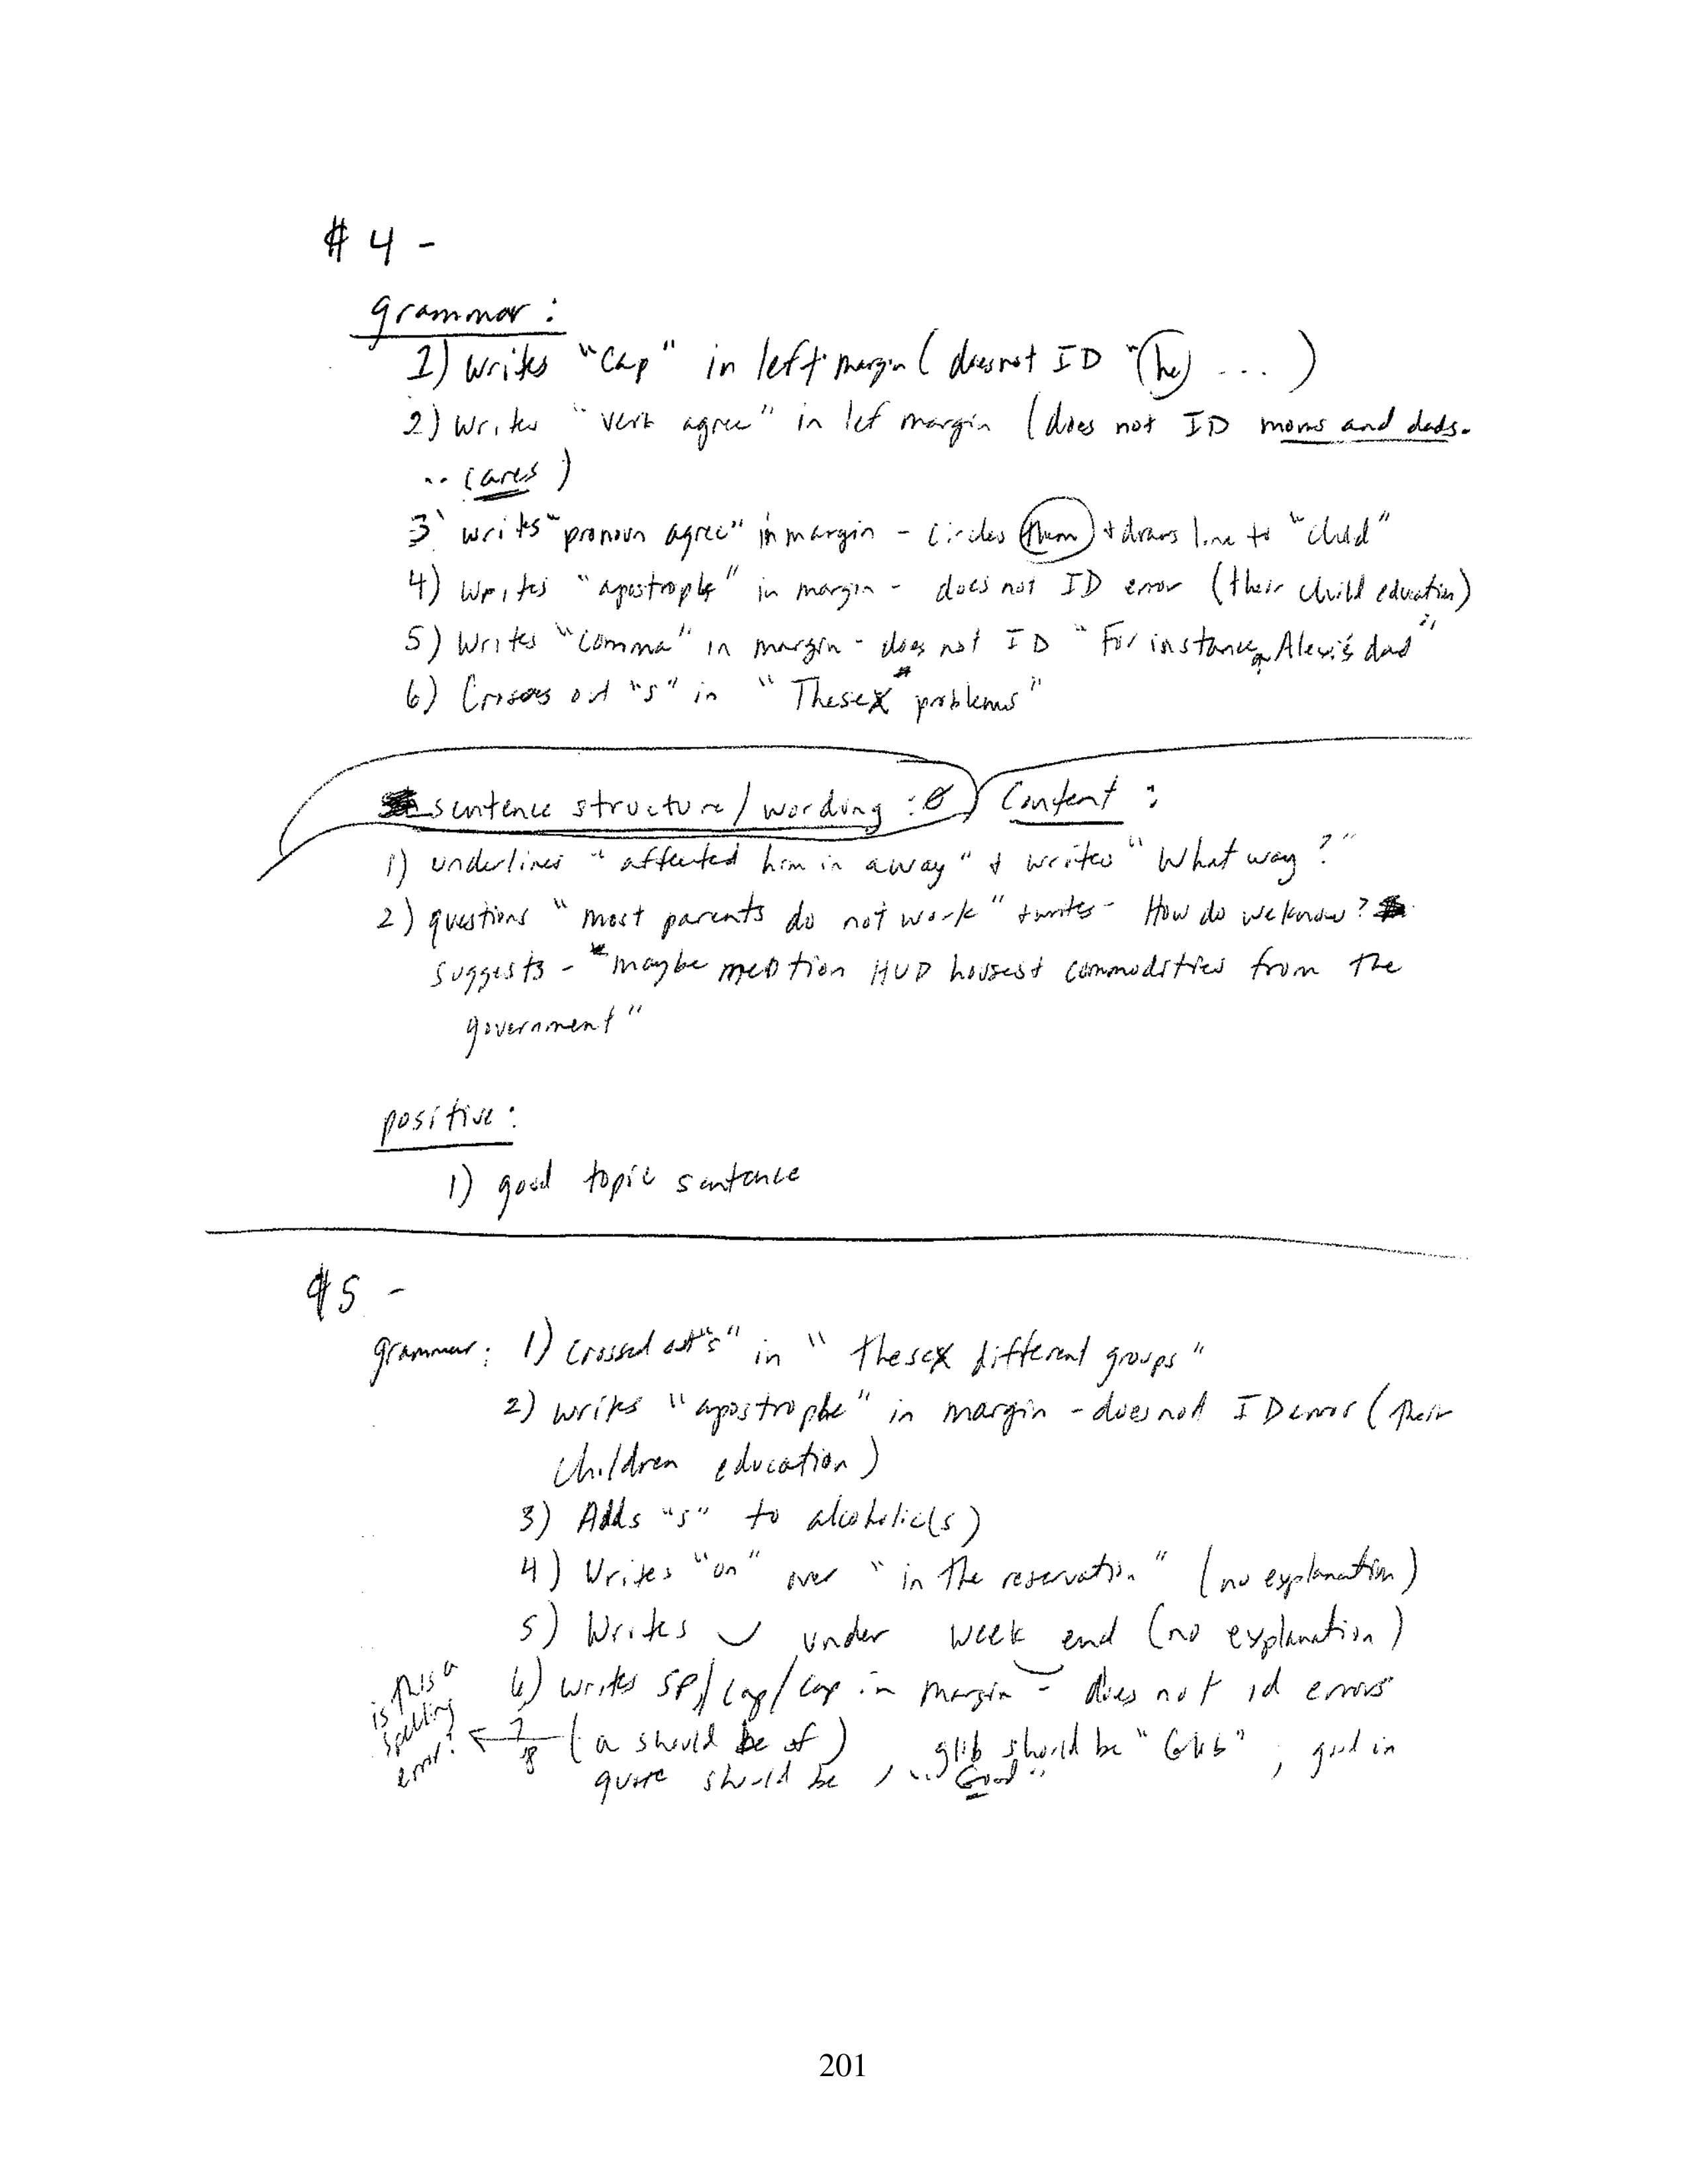 # 4 -
grammar:
1) writes "Cap" in left margin (does not ID "he ... )
2) writes "verb agree" in lef margin (does not ID moms and dads.
.. cares)
3 writs "pronoun agree" in margin - circles them + draws line to "child"
4) writes "apostrophe" in margin - does not ID error (their child education)
5) writes "comma" in margin - does not ID "For instance, Alexis dad"
6) Crosses out "s" in "Theses problems"
sentence structure/wording : Ø Content :
1) underlines "affected him in a way" & writes "What way?"
2) questions "most parents do not work" + writes - How do we know?
suggests - "maybe mention HUD houses + commodities from the
government"
positive:
1) good topic sentence
#5 -
grammar: 1) crossed out "s" in "theses different groups"
2) writes "apostrophe" in margin - does not ID error (their
children education)
3) Adds "s" to alcoholic(s)
4) Writes "on" over "in the reservation" (no explanation)
5) Writes ‿ under week end (no explanation)
6) writes SP/cap/cap in margin - does not id errors
is this a spelling error? ← ? sp (a should be of) , glib should be "Glib" , good in
quote should be "Good"
201